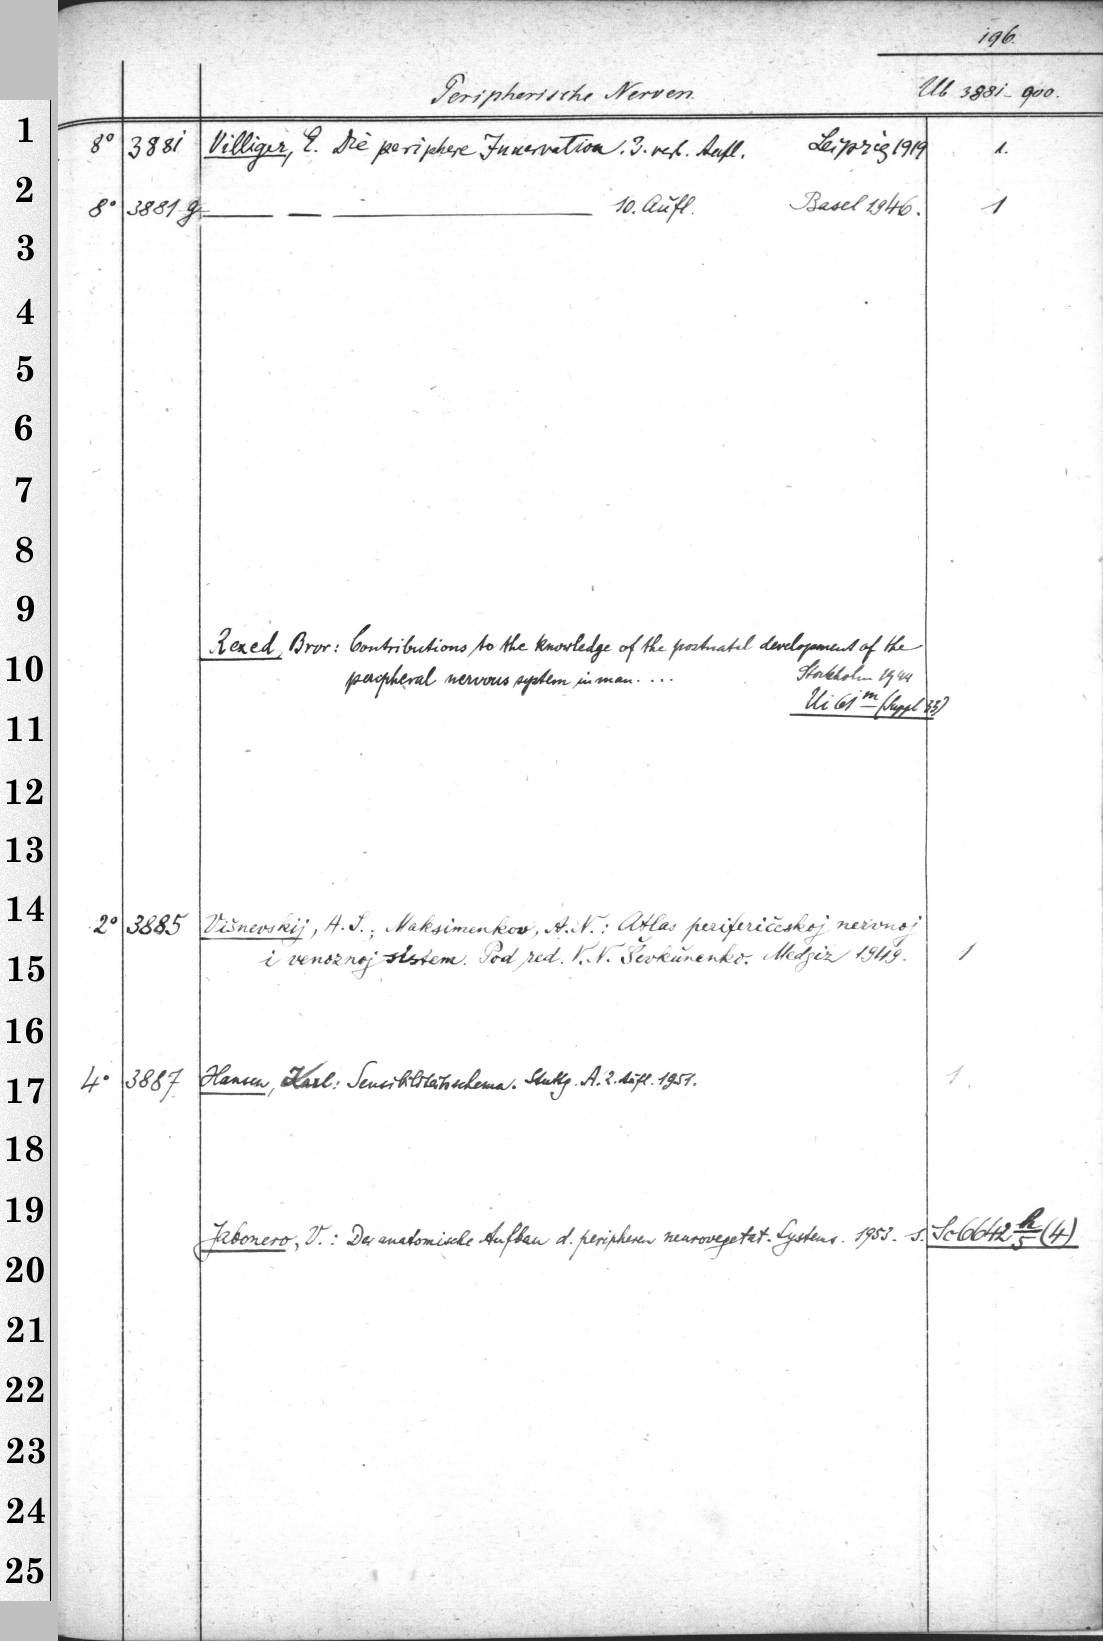 196.
Peripherische Nerven. Ub 3881-900.
1
8° 3881 Villiger, E. Die periphere Innervation. 3. verb. Aufl. Leipzig 1919 1.
2
8° 3881 g — — — 10. Aufl. Basel 1946. 1
3
4
5
6
7
8
9
Rexed, Bror: Contributions to the knowledge of the postnatal development of the
10
peripheral nervous system in man. ... Stockholm 1944
Ui 61 m (Suppl 33)
11
12
13
14
2° 3885 Višnevskij, A. S.; Maksimenkov, A. N.: Atlas periferičeskoj nervnoj
i venoznoj sistem. Pod red. V. N. Ševkunenko. Medgiz 1949. 1
15
16
4° 3887 Hansen, Karl: Sensibilitätsschema. Stuttg. A. 2. Aufl. 1951. 1.
17
18
19
Jabonero, V.: Der anatomische Aufbau d. peripheren neurovegetat. Systems. 1953. s. Sc 6642 h/5 (4)
20
21
22
23
24
25